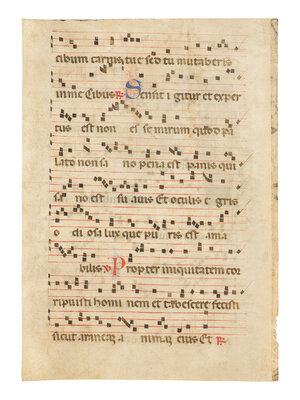 cibum carnis tue sed tu mutaberis
in me Cibus R Sensit igitur et exper
tus est non es se mirum quod pa
lato non sa no pena est panis qui
sa no est su auis Et oculis e gris
o di osa lux que pu ris est ama
bilis Propter iniquitatem cor
ripuisti homi nem et tabescere fecisti
sicut araneam a nimam eius Et R